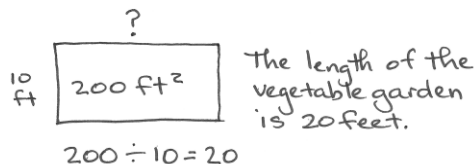 ?
10
ft
200 ft²
The length of the
vegetable garden
is 20 feet.
200 ÷ 10 = 20